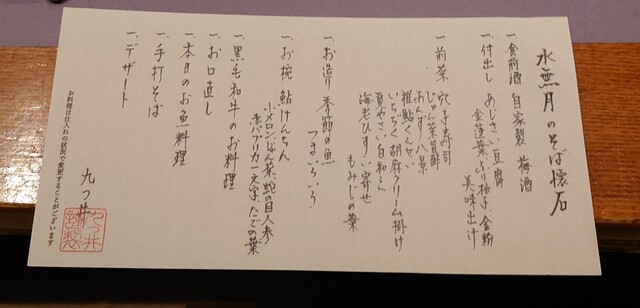 水無月のそば懐石
一、食前酒 自家製 梅酒
一、付出し あじさい豆腐
金蓮葉、ふり柚子、金粉
美味出汁
一、前菜 穴子寿司
じゅん菜旨酢
あんず八景
稚鮎くんせい
いちぢく胡麻クリーム掛け
夏やさい白和え
海老ひすい寄せ
もみじの葉
一、お造り 季節の魚
つまいろいろ
一、お椀 鮎けんちん
小メロン、じゅん菜、蛇の目人参
赤パプリカ一文字、たでの葉
一、黒毛和牛のお料理
一、お口直し
一、本日のお魚料理
一、手打そば
一、デザート
お料理は仕入れの状況で変更することがございます
九つ井